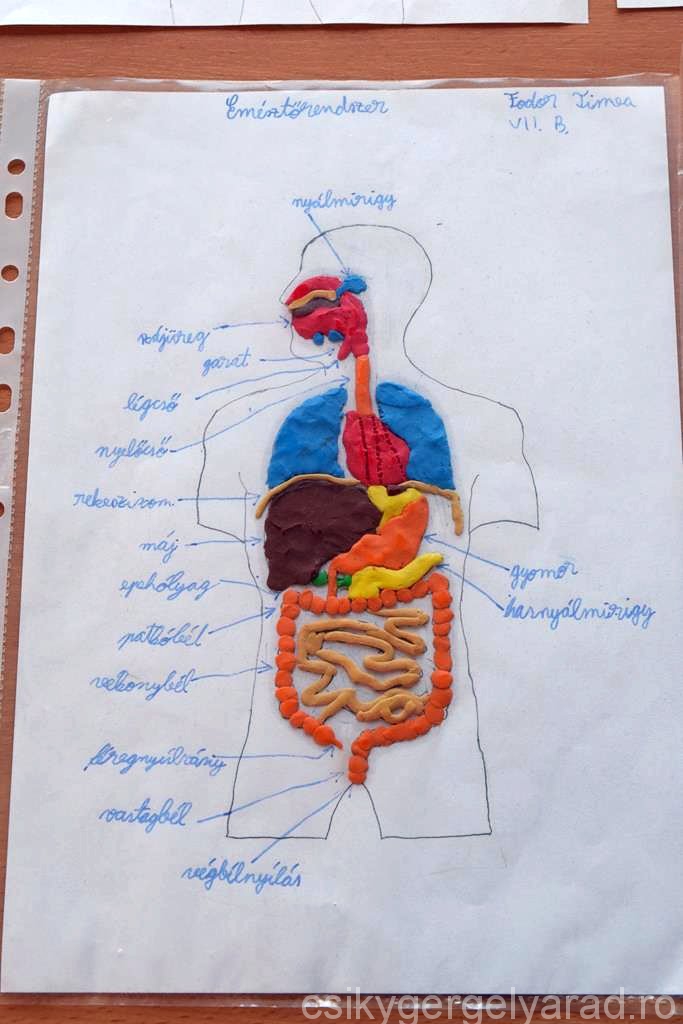 Emésztőrendszer
Fodor Tímea
VII. B.
nyálmirigy
szájüreg
garat
légcső
nyelőcső
rekeszizom
máj
epehólyag
patkóbél
vékonybél
féregnyúlvány
vastagbél
végbélnyílás
gyomor
hasnyálmirigy
esikygergelyarad.ro